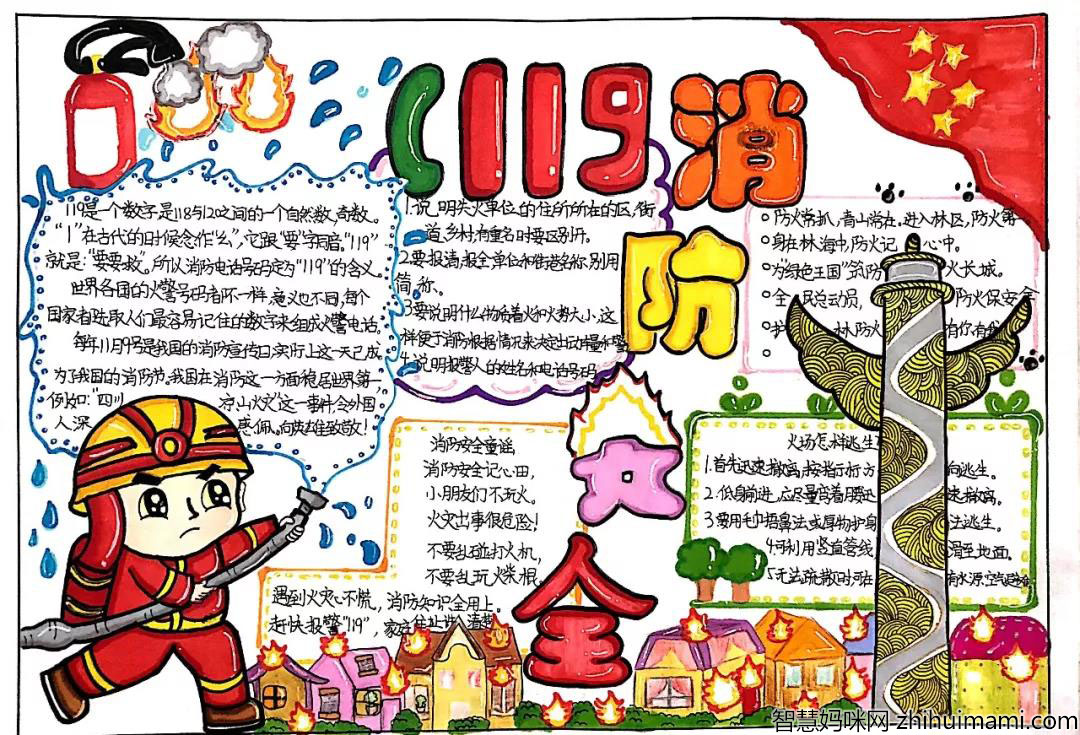 119消防安全
119是一个数字,是118与120之间的一个自然数,奇数。
"1"在古代的时候念作"幺",它跟"要"字同音。"119"
就是:"要要救"。所以消防电话号码定为"119"的含义。
世界各国的火警号码都不一样,意义也不同,每个
国家都选取人们最容易记住的数字来组成火警电话,
每年11月9号是我国的消防宣传日,实际上这一天已成
为了我国的消防节,我国在消防这一方面稳居世界第一
例如:"四川 凉山火灾"这一事件,令外国
人深 感佩。向英雄致敬!
1.说明失火单位的住所所在的区,街
道,乡村,有重名时要区别开。
2.要报清,报全单位和街道名称,别用
简称。
3要说明什么物质着火和火势大小,这
样便于消防根据情况来决定出动
4.说明报警人的姓名和电话号码
防火常抓,青山常在,进入林区,防火第
身在林海中,防火记 心中。
为"绿色王国"筑防 火长城。
全人民总动员, 防火保安全
护 林防火 有你有我
消防安全童谣
消防安全记心田,
小朋友们不玩火。
火灾出事很危险!
不要乱碰打火机,
不要乱玩火柴棍。
遇到火灾心不慌, 消防知识全用上。
赶快报警"119",家庭住址讲清楚
火场怎样逃生
1.首先迅速撤离,按指示标方 向逃生。
2.低身前进,应尽量弯着腰迅 速撤离。
3要用毛巾捂鼻法或厚物护身 法逃生。
4可利用竖直管线 滑至地面。
5无法疏散时可在 有水源,空气
智慧妈咪网-zhihuimami.com